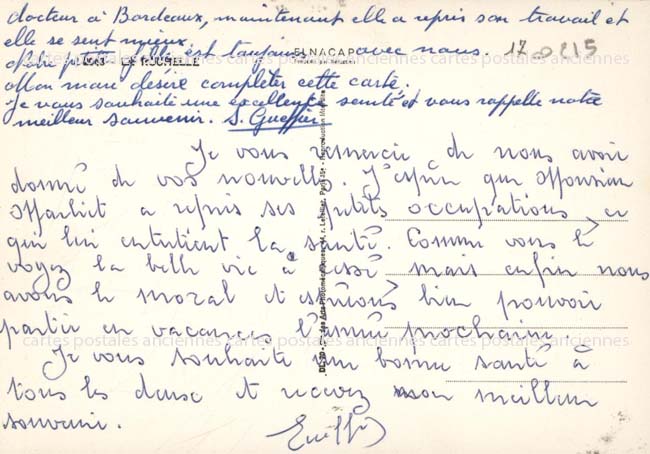 docteur à Bordeaux, maintenant elle a repris son travail et
elle se sent mieux.
Notre petite fille est toujours avec nous. 17 0215
ELNACAP
LE P. JUMELLE
Mon mari désire compléter cette carte.
Je vous souhaite une excellente santé et vous rappelle notre
meilleur souvenir. S. Gueffier
Je vous remercie de nous avoir
donné de vos nouvelles. J'espère que Monsieur
a repris ses petits occupations ce
qui lui entretient la santé. Comme vous le
voyez la belle vie à cessé mais enfin nous
avons le moral et espérons bien pouvoir
partir en vacances l'année prochaine.
cartes postales anciennes cartes postales anciennes cartes postales anciennes
Je vous souhaite une bonne santé à
tous les deux et recevez mon meilleur
souvenir.